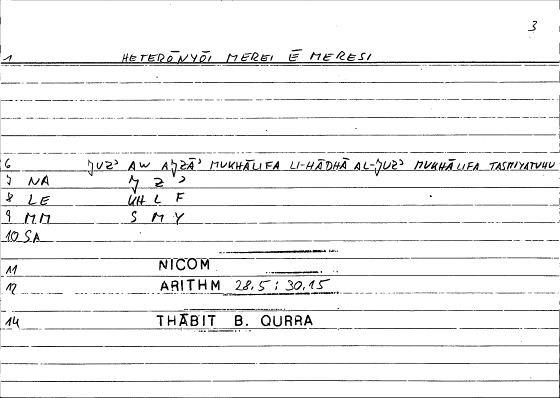 3
1 HETERŌNYŌI MEREI Ē MERESI
6 JUZʾ AW AJZĀʾ MUKHĀLIFA LI-HĀDHĀ AL-JUZʾ MUKHĀLIFA TASMIYATUHU
7 NA J Z ʾ
8 LE KH L F
9 MM S M Y
10 SA
11 NICOM
12 ARITHM 28,5; 30,15
14 THĀBIT B. QURRA